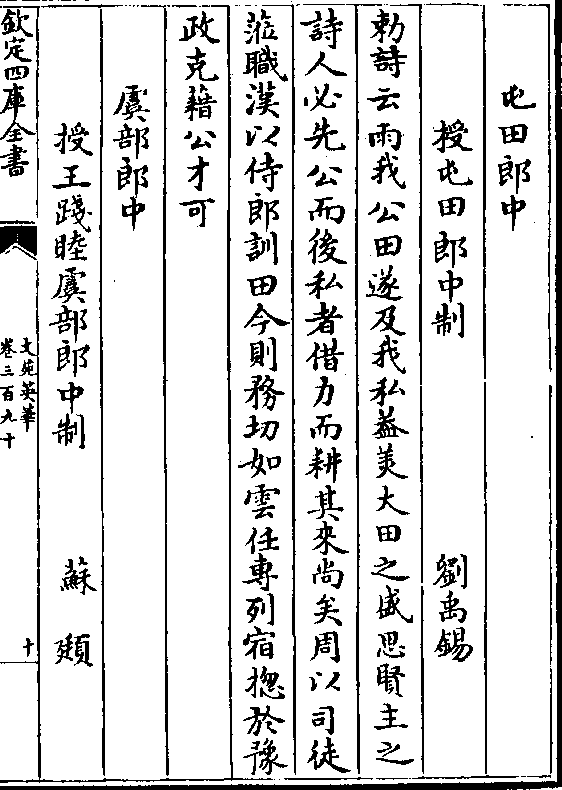 屯田郎中
授屯田郎中制 劉禹錫
勅詩云雨我公田遂及我私葢美大田之盛思賢主之
詩人必先公而後私者借力而耕其來尚矣周以司徒
蒞職漢以侍郎訓田今則務切如雲任專列宿揔於豫
政克藉公才可
虞部郎中
授王踐睦虞部郎中制 蘇頲
欽定四庫全書
文苑英華
卷三百九十
十